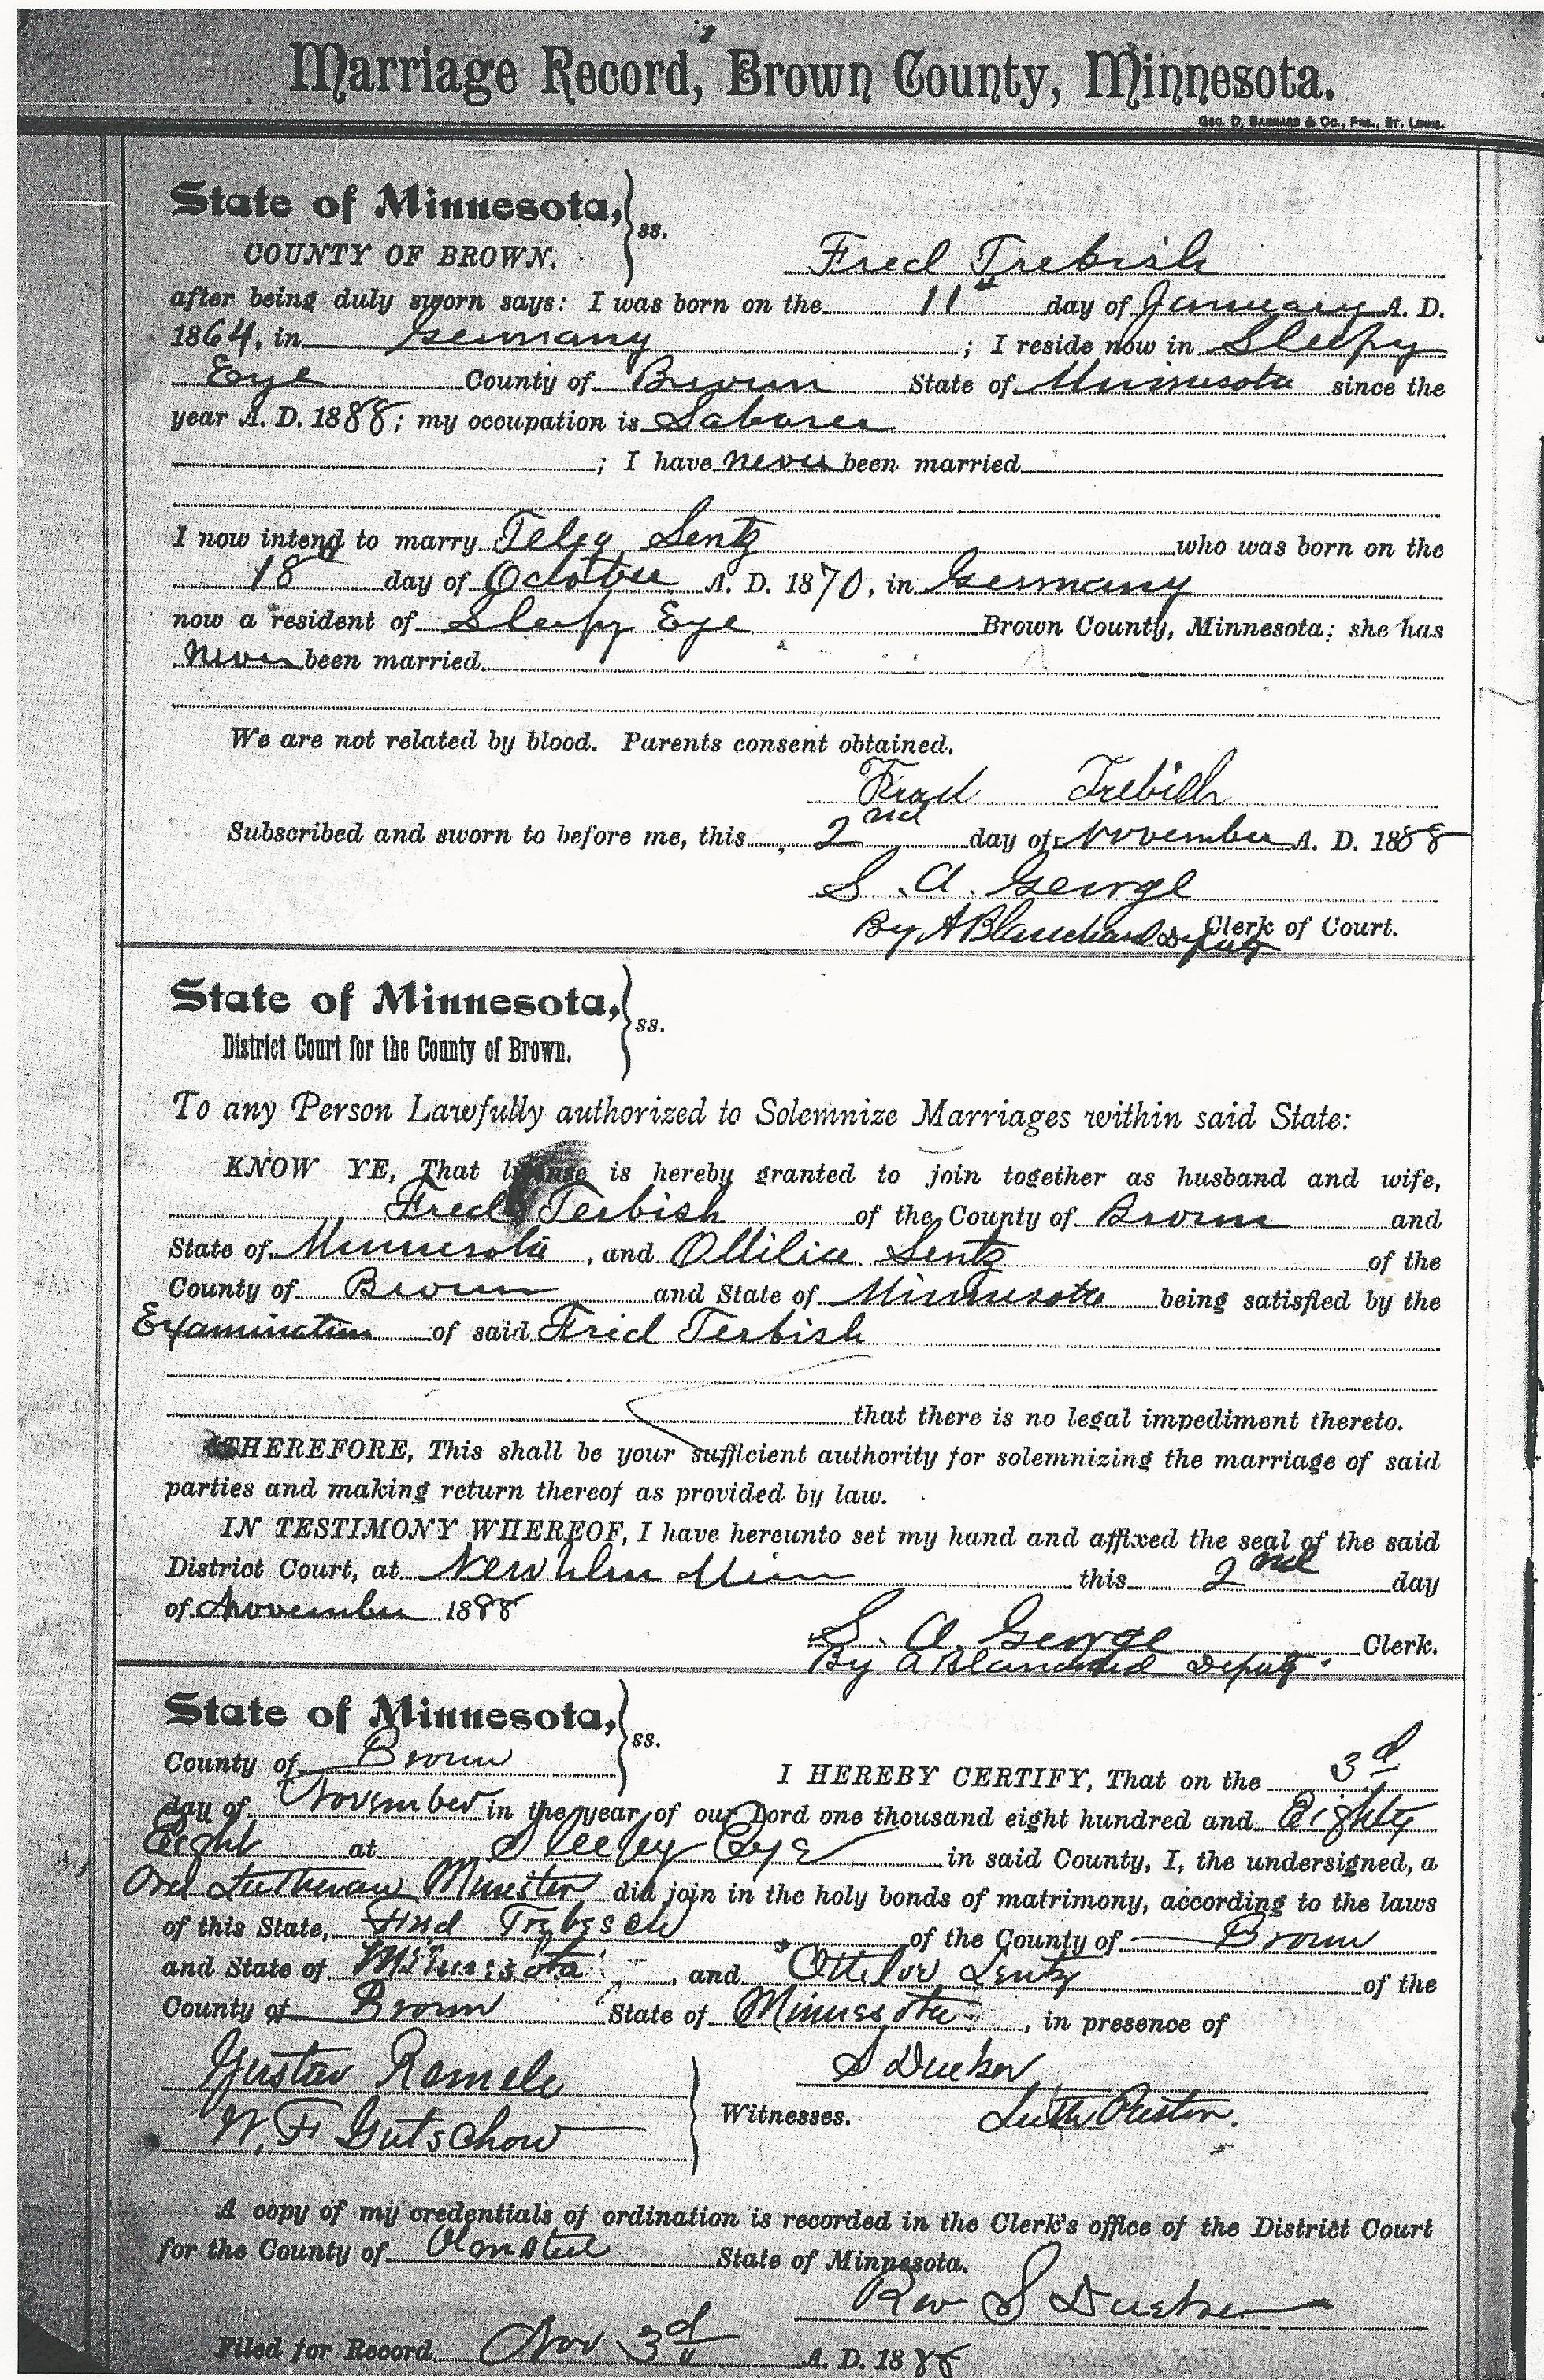 Marriage Record, Brown County, Minnesota.
Geo. D. Barnard & Co., Prs., St. Louis.
State of Minnesota, } ss.
COUNTY OF BROWN.
Fred Trebish
after being duly sworn says: I was born on the 11th day of January A. D.
1864, in Germany ; I reside now in Sleepy
Eye County of Brown State of Minnesota since the
year A. D. 1888; my occupation is Laborer
; I have never been married
I now intend to marry Lentz who was born on the
18 day of October A. D. 1870, in Germany
now a resident of Sleepy Eye Brown County, Minnesota; she has
Never been married.
We are not related by blood. Parents consent obtained.
Fred Trebish
Subscribed and sworn to before me, this 2nd day of November A. D. 1888
S. A. George
By A Blanchard Deputy Clerk of Court.
State of Minnesota, } ss.
District Court for the County of Brown.
To any Person Lawfully authorized to Solemnize Marriages within said State:
KNOW YE, That license is hereby granted to join together as husband and wife,
Fred Terbish of the County of Brown and
State of Minnesota, and Ottilia Lentz of the
County of Brown and State of Minnesota being satisfied by the
Examination of said Fred Terbish
that there is no legal impediment thereto.
THEREFORE, This shall be your sufficient authority for solemnizing the marriage of said
parties and making return thereof as provided by law.
IN TESTIMONY WHEREOF, I have hereunto set my hand and affixed the seal of the said
District Court, at New Ulm Minn this 2nd day
of November 1888
S. A. George Clerk.
By A Blanchard Deputy.
State of Minnesota, } ss.
County of Brown
I HEREBY CERTIFY, That on the 3d
day of November in the year of our Lord one thousand eight hundred and Eighty
Eight at Sleepy Eye in said County, I, the undersigned, a
Lutheran Minister did join in the holy bonds of matrimony, according to the laws
of this State, Fred Trebesch of the County of Brown
and State of Minnesota, and Lentz of the
County of Brown State of Minnesota, in presence of
Gustav Ramele
W. F Gutschow
Witnesses.
S Dueker
Luth Pastor.
A copy of my credentials of ordination is recorded in the Clerk's office of the District Court
for the County of Olmsted State of Minnesota.
Rev S Dueker
Filed for Record Nov 3d A. D. 1888